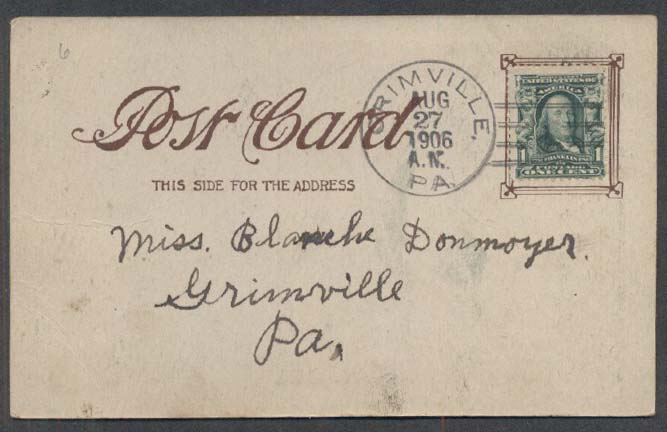 6
Post Card
THIS SIDE FOR THE ADDRESS
GRIMVILLE.
AUG
27
1906
A.M.
PA.
UNITED STATES OF
AMERICA
1
FRANKLIN
ONE CENT
Miss. Blanche Donmoyer.
Grimville
Pa.